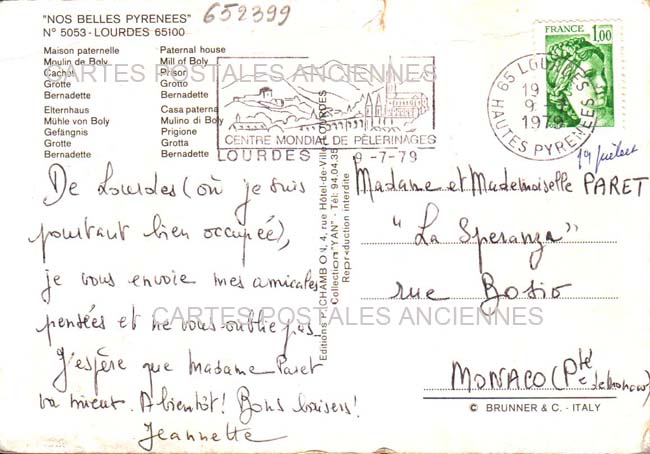 "NOS BELLES PYRENEES"
N° 5053 - LOURDES 65100
652399
Maison paternelle
Moulin de Boly
Cachot
Grotte
Bernadette
Paternal house
Mill of Boly
Prison
Grotto
Bernadette
Elternhaus
Mühle von Boly
Gefängnis
Grotte
Bernadette
Casa paterna
Mulino di Boly
Prigione
Grotta
Bernadette
CARTES POSTALES ANCIENNES
CENTRE MONDIAL DE PÈLERINAGES
LOURDES
9-7-79
FRANCE
1,00
65 LOURDES
19
9-
1979
HAUTES PYRENEES
19 juillet
De Lourdes (où je suis
pourtant bien occupée),
je vous envoie mes amicales
pensées et ne vous oublie pas.
J'espère que Madame Paret
va mieux. A bientôt! Bons baisers!
Jeannette
Editions P. CHAMBON, 4, rue Hôtel-de-Ville, LOURDES
Collection "YAN" - Tél. 94.04.35
Reproduction interdite
Madame et Mademoiselle PARET
"La Speranza"
rue Bosio
MONACO (Pté de Monaco)
CARTES POSTALES ANCIENNES
© BRUNNER & C. - ITALY